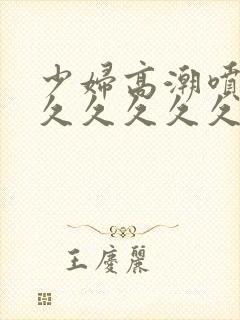 少婦高潮噴
久久久久久
王慶麗